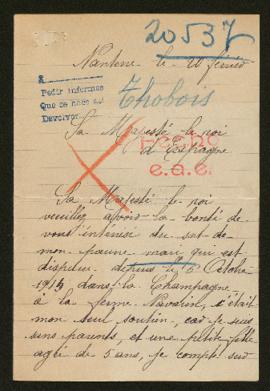 20537
Nanterre le 20 février
A
Pedir informes
Que se hace así
Devolver
Thobois
Sa Majesté le roi
d'Espagne
Hecho
e.a.e.
Sa Majesté le roi
veuillez avoir la bonté de
vous intérissé du sort de
mon pauvre mari qui est
disparu depuis le 6 Octobre
1915 dans la Champagne
à la ferme Navarin, c'était
mon seul soutien, car je suis
sans parents, et une petite fille
agée de 5 ans, je compte sur